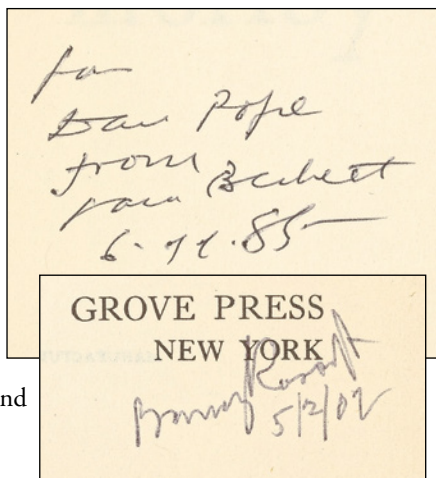 for
Dan Pope
from
Sam Beckett
6.11.85
GROVE PRESS
NEW YORK
nd
Barney Rosset
5/2/02